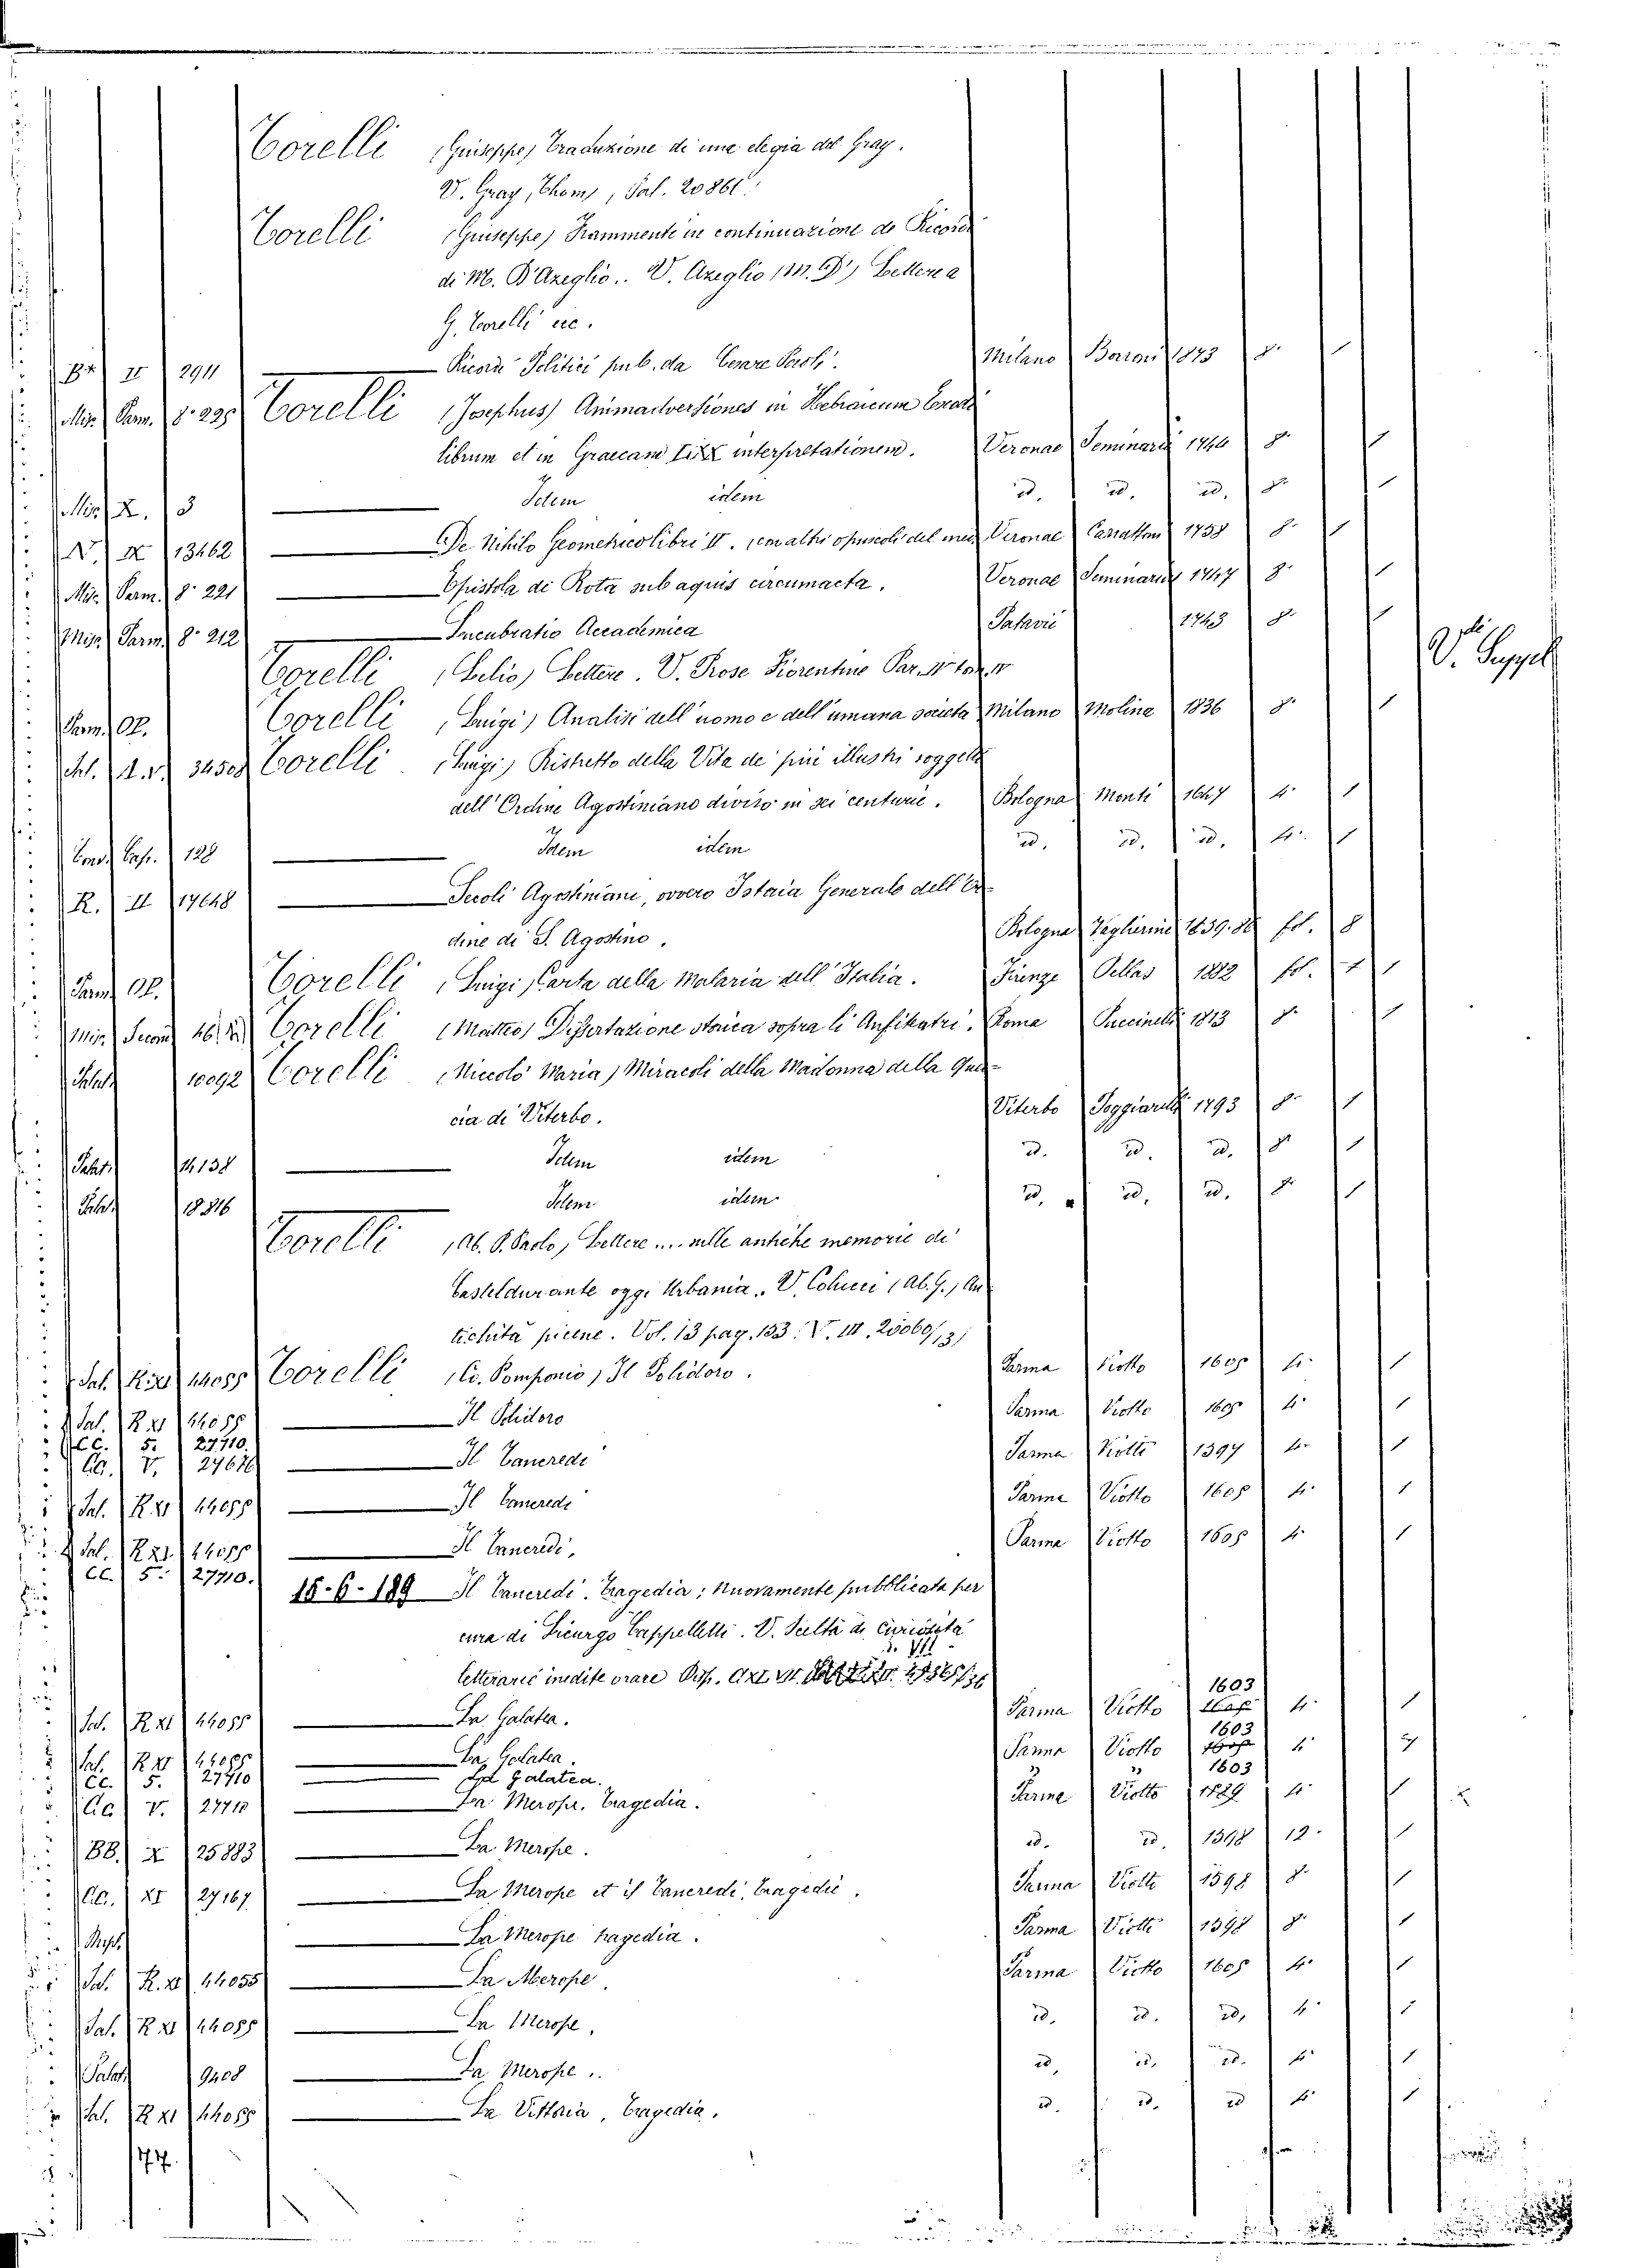 Torelli (Guiseppe) Traduzione di una elegia del Gray.
V. Gray, Thom, Pal. 20861.
Torelli (Guiseppe) Frammenti in continuazione de Ricordi
di M. D'Azeglio.. V. Azeglio (M. D') Lettere a
G. Torelli ecc.
II 2911 Ricordi Politici pub. da Cesare Paoli. Milano Baroni 1873 8°
Mis. Parm. 8° 225 Torelli (Josephus) Animadversiones in Hebraicum Exodi
librum et in Graecam LXX interpretationem. Veronae Seminarii 1744 8° 1
Mis. X. 3 Idem idem id. id. id. 8° 1
N. IX 13462 De Nihilo Geometrico libri II. con altri opuscoli del med. Veronae Carattoni 1758 8° 1
Mis. Parm. 8° 221 Epistola di Rota sub aquis circumacta. Veronae Seminarii 1747 8° 1
Mis. Parm. 8° 212 Lucubratio Accademica Patavii 1743 8° 1
Torelli (Lelio) Lettere. V. Prose Fiorentine Par. IV tom. IV
V. Suppl
Parm. Op. Torelli (Luigi) Analisi dell'uomo e dell'umana società Milano Molina 1836 8° 1
34508 Torelli (Luigi) Ristretto della Vita de' più illustri soggetti
dell'Ordine Agostiniano diviso in sei centurie. Bologna Monti 1647 4° 1
Cap. 128 Idem idem id. id. id. 4° 1
R. II 17648 Secoli Agostiniani, ovvero Istoria Generale dell'Or-
dine di S. Agostino. Bologna Taglierini 1659.86 fol. 8
Parm. Op. Torelli (Luigi) Carta della Malaria dell'Italia. Firenze Pellas 1882 fol. 1
Torelli (Matteo) Dissertazione storica sopra li Anfiteatri. Roma Puccinelli 1813 8° 1
Palat. 10092 Torelli (Niccolò Maria) Miracoli della Madonna della Quer-
cia di Viterbo. Viterbo Poggiarelli 1793 8° 1
Palat. 14138 Idem idem id. id. id. 8° 1
Palat. 18816 Idem idem id. id. id. 8° 1
Torelli (Ab. P. Paolo) Lettere ... sulle antiche memorie di
Casteldurante oggi Urbania.. V. Colucci (Ab. G.) An
tichità picene. Vol. 13 pag. 153. V. III. 25060/13)
Sal. R XI 44055 Torelli (Co. Pomponio) Il Polidoro. Parma Viotto 1605 4° 1
Sal. R XI 44055 Il Polidoro Parma Viotto 1605 4° 1
CC. 5. 27710.
CC. V. 27676 Il Tancredi Parma Viotti 1597 4° 1
Sal. R XI 44055 Il Tancredi Parma Viotto 1605 4° 1
Sal. R XI 44055 Il Tancredi. Parma Viotto 1605 4° 1
CC. 5. 27710.
15-6-189 Il Tancredi. Tragedia; nuovamente pubblicata per
cura di Licurgo Cappelletti. V. Scelta di Curiosità
letterarie inedite o rare Disp.
Sal. R XI 44055 La Galatea. Parma Viotto 1603 4° 1
Sal. R XI 44055 La Galatea. Parma Viotto 1603 4°
CC. 5. 27710 La Galatea. 1603
CC. V. 27710 La Merope. Tragedia. Parma Viotto 1589 4° 1
BB. X 25883 La Merope. id. id. 1598 12° 1
CC. XI 27167 La Merope et il Tancredi, tragedie. Parma Viotti 1598 8° 1
La Merope tragedia. Parma Viotti 1598 8° 1
Sal. R. XI 44055 La Merope. Parma Viotto 1605 4° 1
Sal. R XI 44055 La Merope. id. id. id. 4° 1
Palat. 9408 La Merope.. id. id. id. 4° 1
Sal. R XI 44055 La Vittoria, Tragedia. id. id. id 4° 1